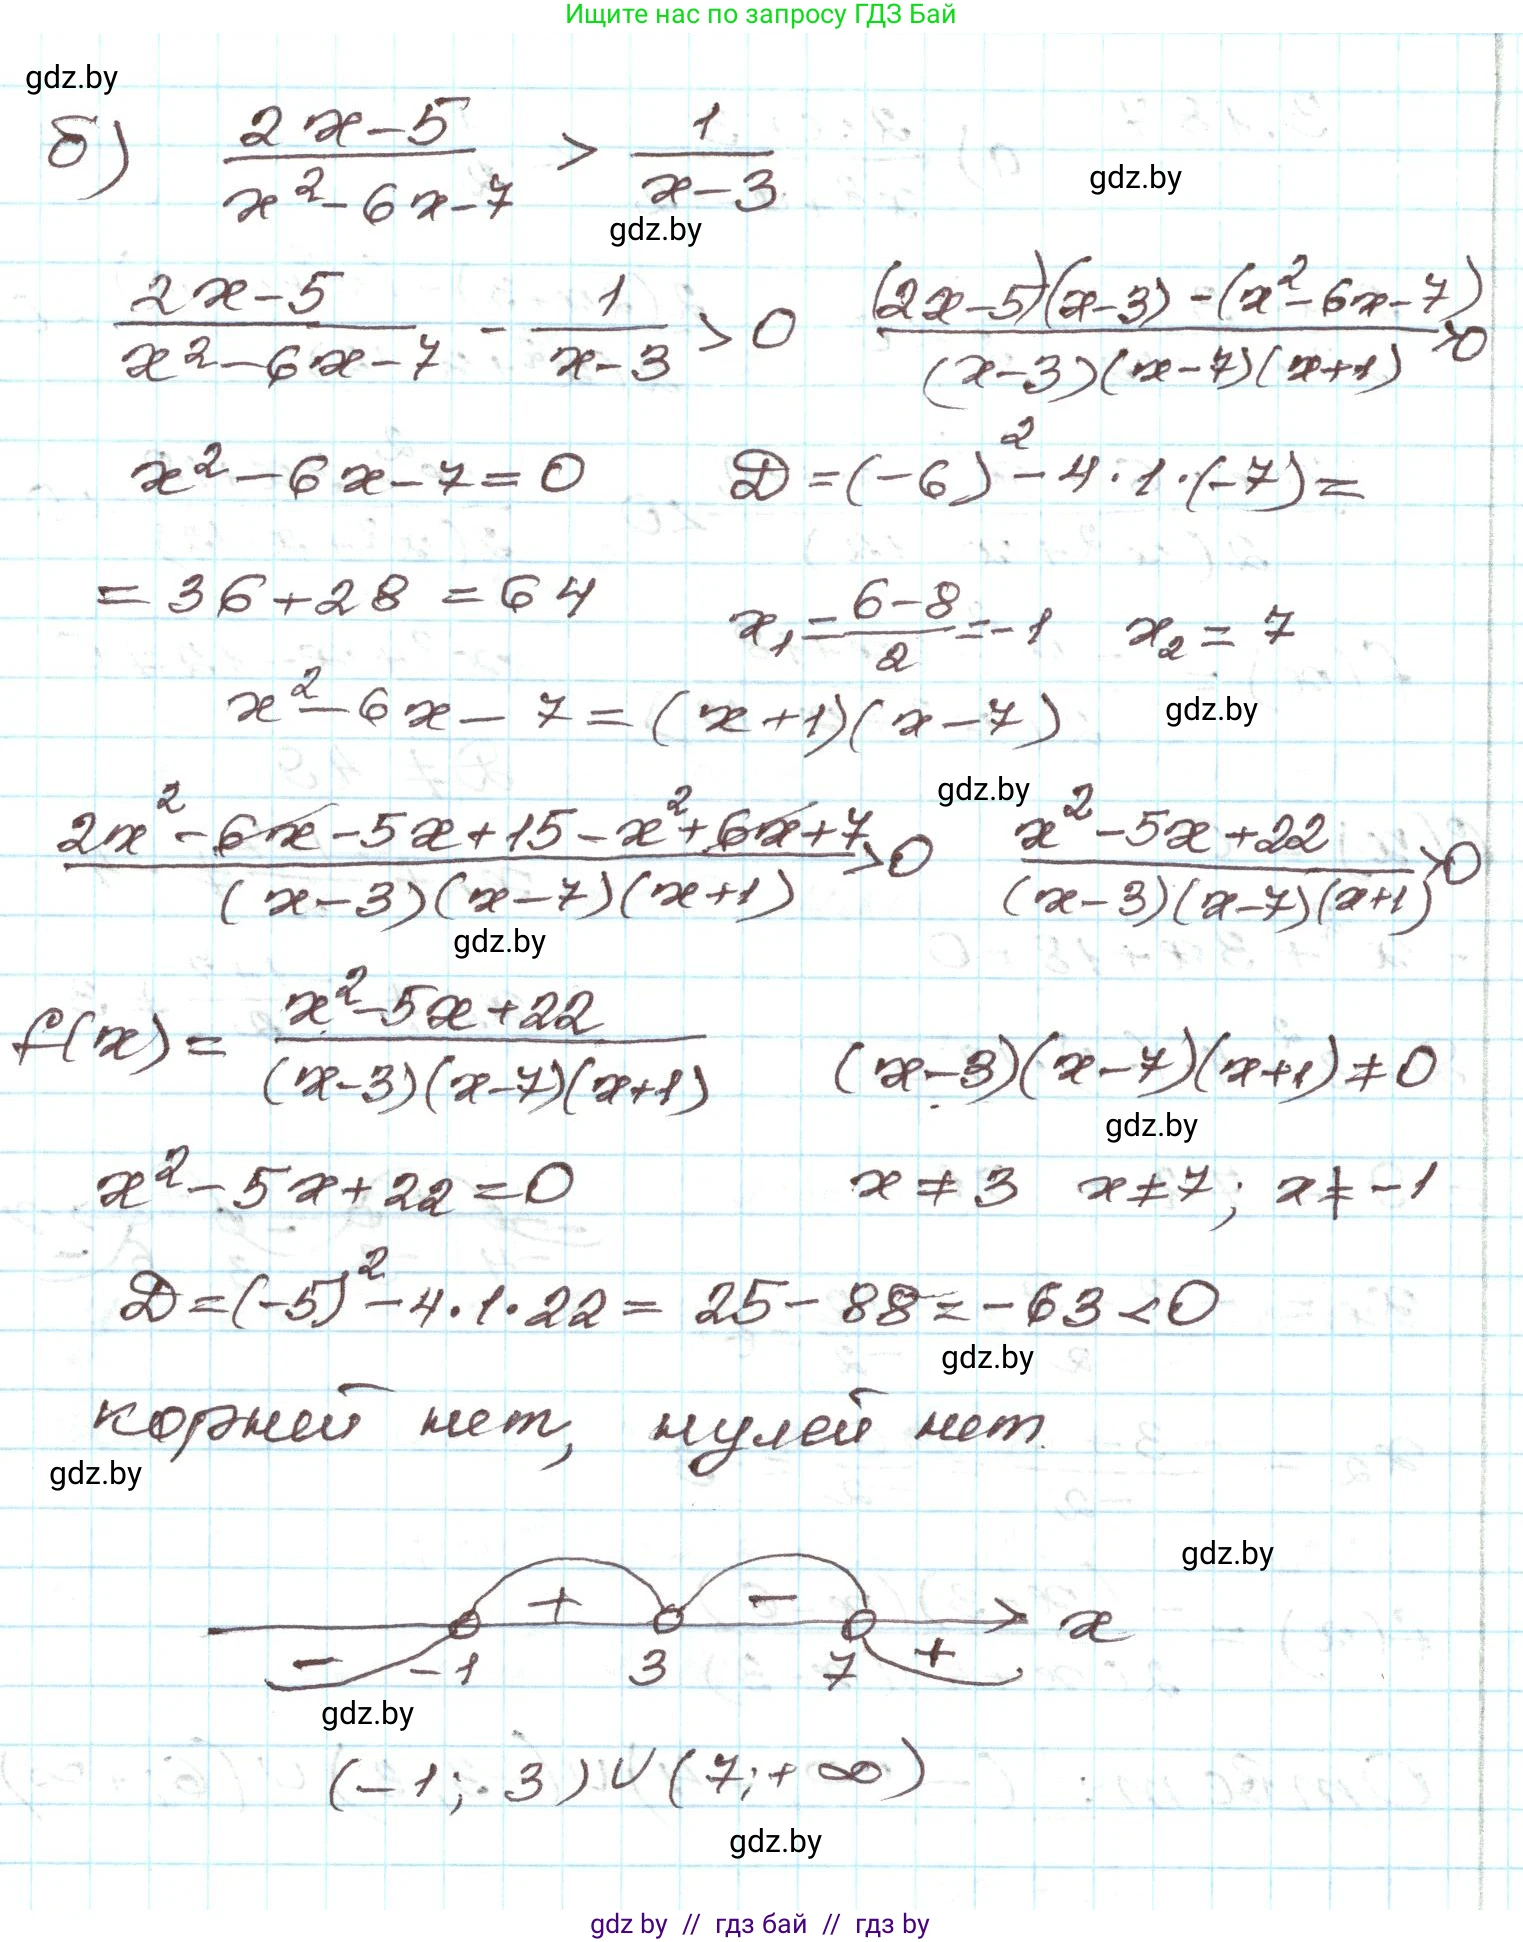 Ищите нас по запросу ГДЗ Бай
gdz.by
б) (2x-5)/(x²-6x-7) > 1/(x-3)
gdz.by
gdz.by
(2x-5)/(x²-6x-7) - 1/(x-3) > 0   ((2x-5)(x-3)-(x²-6x-7))/((x-3)(x-7)(x+1)) > 0
x²-6x-7=0   D=(-6)²-4·1·(-7)=
=36+28=64   x₁=(6-8)/2=-1   x₂=7
x²-6x-7=(x+1)(x-7)
gdz.by
gdz.by
(2x²-6x-5x+15-x²+6x+7)/((x-3)(x-7)(x+1)) > 0   (x²-5x+22)/((x-3)(x-7)(x+1)) > 0
gdz.by
f(x)=(x²-5x+22)/((x-3)(x-7)(x+1))   (x-3)(x-7)(x+1)≠0
gdz.by
x²-5x+22=0   x≠3   x≠7; x≠-1
D=(-5)²-4·1·22=25-88=-63<0
gdz.by
корней нет, нулей нет.
gdz.by
gdz.by
+ - x
- -1 3 7 +
gdz.by
(-1; 3)∪(7;+∞)
gdz.by
gdz by // гдз бай // гдз by